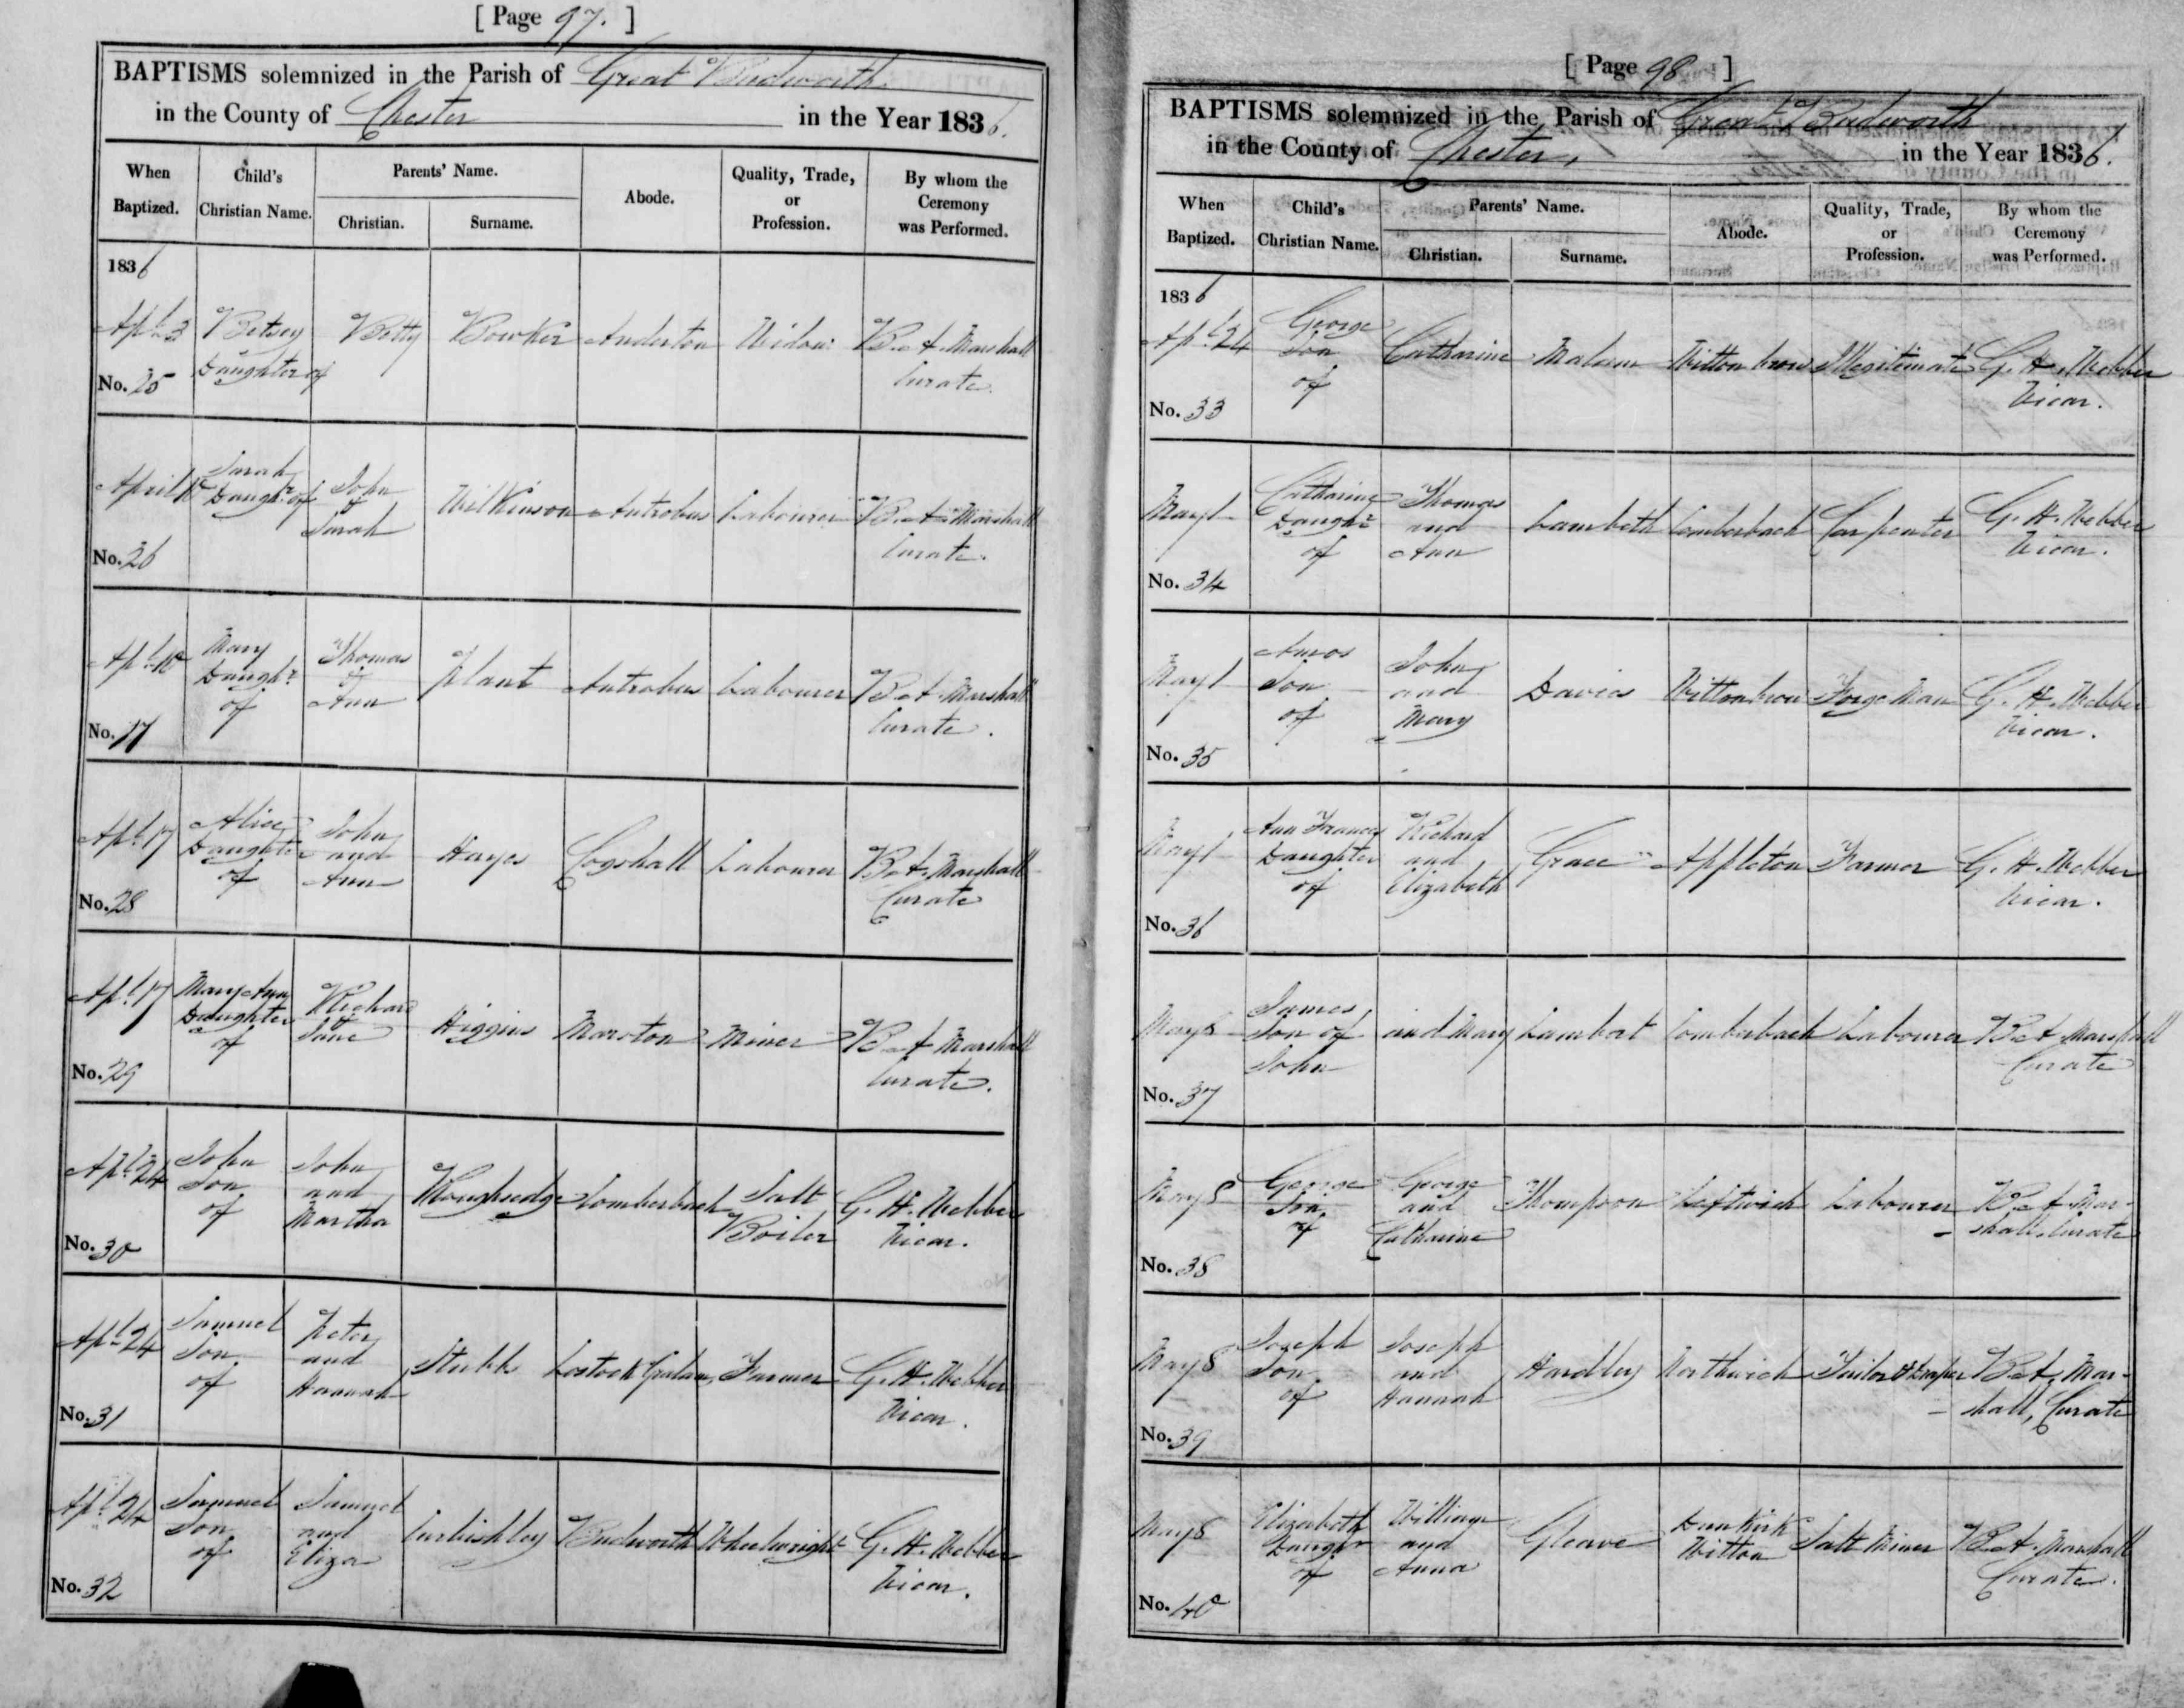 [ Page 97. ]
BAPTISMS solemnized in the Parish of Great Budworth
in the County of Chester in the Year 1836.
When Baptized.
Child's Christian Name.
Parents' Name.
Christian.
Surname.
Abode.
Quality, Trade, or Profession.
By whom the Ceremony was Performed.
1836
Apl. 3
No. 25
Betsey
Daughter of
Betty
Bowker
Anderton
Widow
B. A. Marshall
Curate.
April 10
No. 26
Sarah
Daughr of
John
&
Sarah
Wilkinson
Antrobus
Labourer
B. A. Marshall
Curate.
Apl. 10
No. 17
Mary
Daughr
of
Thomas
&
Ann
Plant
Antrobus
Labourer
B A. Marshall
Curate.
Apl. 17
No. 28
Alice
Daughter
of
John
and
Ann
Hayes
Cogshall
Labourer
B A. Marshall
Curate
Apl. 17
No. 29
Mary Ann
Daughter
of
Richard
&
Jane
Higgins
Marston
Miner
B A Marshall
Curate.
Apl. 24
No. 30
John
Son
of
John
and
Martha
Comberbach
Salt
Boiler
G. H. Webber
Vicar.
Apl. 24
No. 31
Samuel
Son
of
Peter
and
Hannah
Stubbs
Lostock Gralam
Farmer
G. H. Webber
Vicar.
Apl. 24
No. 32
Samuel
Son
of
Samuel
and
Eliza
Curbishley
Budworth
Wheelwright
G. H. Webber
Vicar.
[ Page 98 ]
BAPTISMS solemnized in the Parish of Great Budworth
in the County of Chester, in the Year 1836.
When Baptized.
Child's Christian Name.
Parents' Name.
Christian.
Surname.
Abode.
Quality, Trade, or Profession.
By whom the Ceremony was Performed.
1836
Apl. 24
No. 33
George
Son
of
Catharine
Malam
Witton brow
Illegitimate
G. H. Webber
Vicar.
May 1
No. 34
Catharine
Daughr
of
Thomas
and
Ann
Lambeth
Comberbach
Carpenter
G. H. Webber
Vicar.
May 1
No. 35
Amos
Son
of
John
and
Mary
Davies
Witton brow
Forge Man
G. H. Webber
Vicar.
May 1
No. 36
Ann Frances
Daughter
of
Richard
and
Elizabeth
Grace
Appleton
Farmer
G. H. Webber
Vicar.
May 8
No. 37
James
Son of
John
and Mary
Lambert
Comberbach
Labourer
B A Marshall
Curate
May 8
No. 38
George
Son
of
George
and
Catharine
Thompson
Leftwich
Labourer
B A Mar-
shall, Curate
May 8
No. 39
Joseph
Son
of
Joseph
and
Hannah
Handley
Northwich
Tailor & Draper
B A. Mar-
shall, Curate
May 8
No. 40
Elizabeth
Daughr
of
William
and
Anna
Gleave
Dunkirk
Witton
Salt Miner
B A. Marshall
Curate.